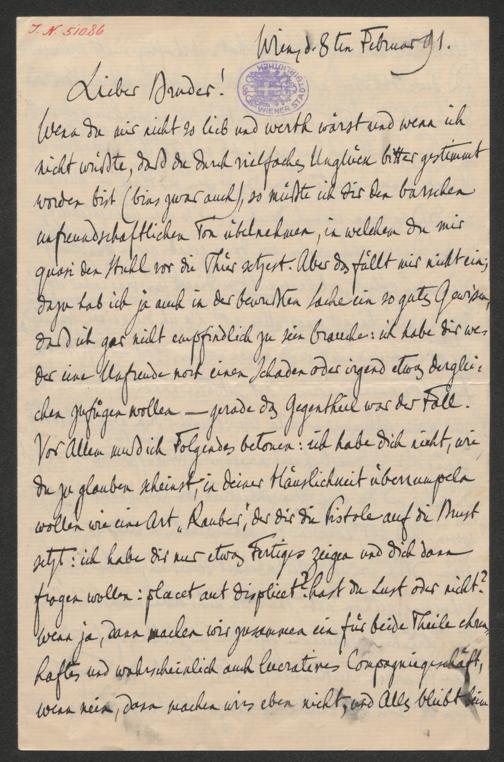 J. N. 51086
Wien, d. 8ten Februar 91.
WIENER STADTBIBLIOTHEK
Lieber Bruder!
Wenn du mir nicht so lieb und werth wärst und wenn ich
nicht wüßte, daß du durch vielfaches Unglück bitter gestimmt
worden bist (bins zwar auch), so müßte ich dir den barschen
unfreundschaftlichen Ton übelnehmen, in welchem du mir
quasi den Stuhl vor die Thür setzest. Aber das fällt mir nicht ein;
dazu hab ich ja auch in der bewußten Sache ein so gutes Gewissen,
daß ich gar nicht empfindlich zu sein brauche: ich habe dir we-
der eine Unfreude noch einen Schaden oder irgend etwas derglei-
chen zufügen wollen — gerade das Gegentheil war der Fall.
Vor Allem muß ich Folgendes betonen: ich habe dich nicht, wie
du zu glauben scheinst, in deiner Häuslichkeit überrumpeln
wollen wie eine Art „Räuber", der dir die Pistole auf die Brust
setzt: ich habe dir nur etwas Fertiges zeigen und dich dann
fragen wollen: placet aut displicet? hast du Lust oder nicht?
wenn ja, dann machen wir zusammen ein für beide Theile ehren-
haftes und wahrscheinlich auch lucratives Compagniegeschäft,
wenn nein, dann machen wirs eben nicht, und Alles bleibt beim